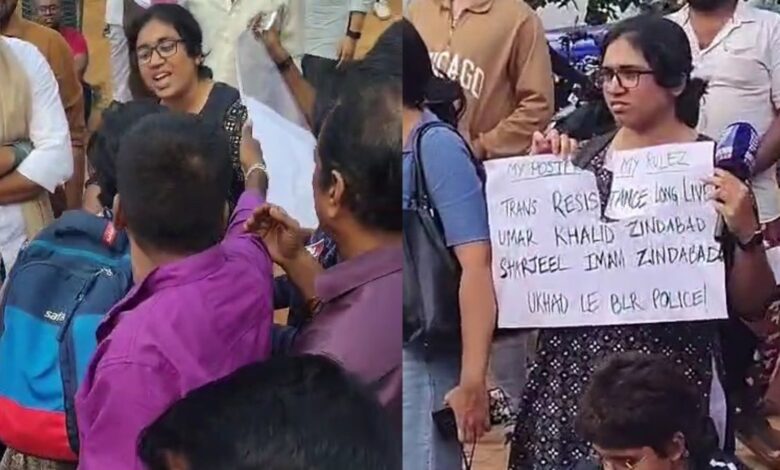 safari
CHICAGO
MY POSTER MY RULEZ
TRANS RESISTANCE LONG LIVE
UMAR KHALID ZINDABAD
SHARJEEL IMAM ZINDABAD
UKHAD LE BLR POLICE!